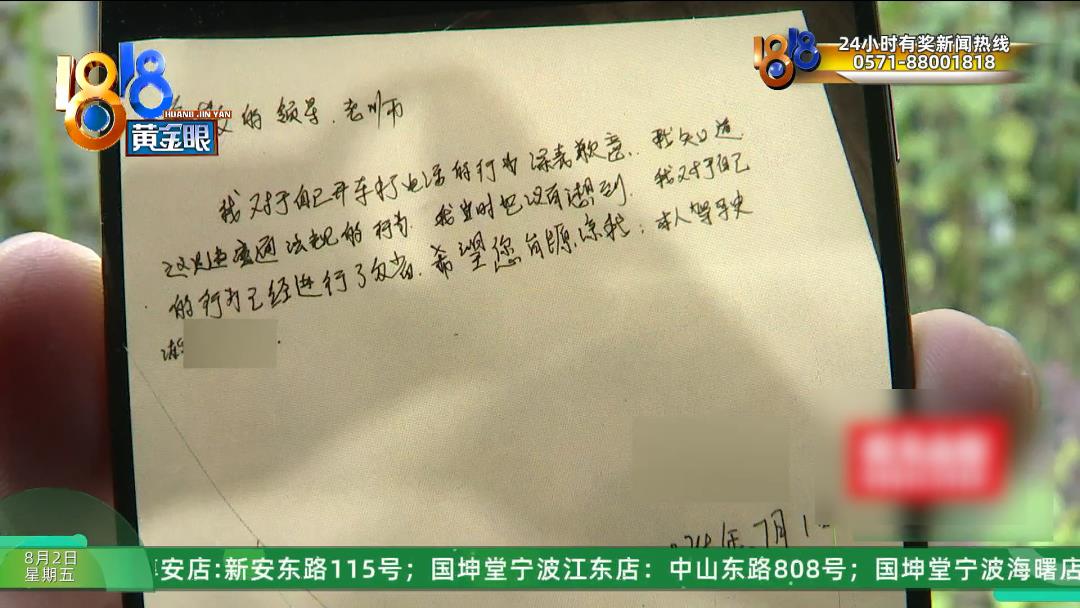 1818
HUANG JIN YAN
黄金眼
1818
24小时有奖新闻热线
0571-88001818
的领导、老师
我对于自己开车打电话的行为深表歉意。我知道
这是违反交通法规的行为。我当时也没有想到。我对于自己
的行为已经进行了反省。希望您能原谅我；本人驾驶
年7月1
8月2日
星期五
安店:新安东路115号；国坤堂宁波江东店：中山东路808号；国坤堂宁波海曙店